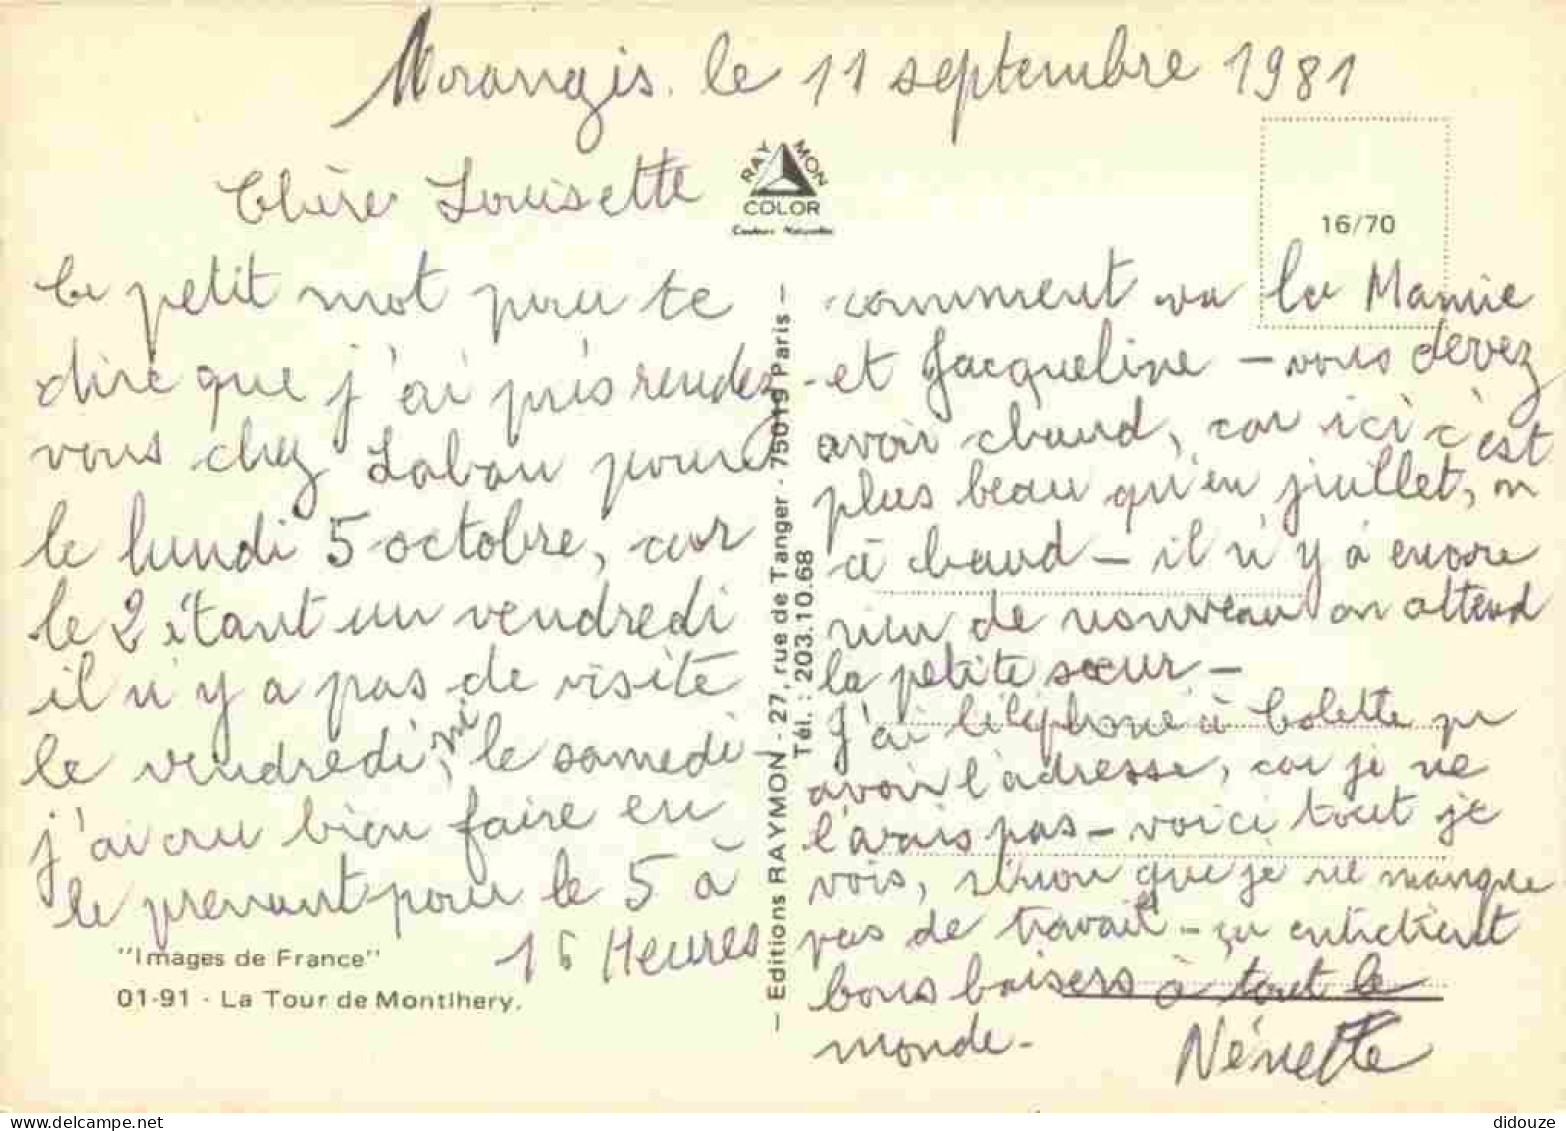 Morangis. le 11 septembre 1981
Chère Louisette
RAY MON
COLOR
Couleurs Naturelles
16/70
Ce petit mot pour te
dire que j'ai pris rendez-
vous chez Laban pour
le lundi 5 octobre, car
le 2 étant un vendredi
il n'y a pas de visite
le vendredi, ni le samedi
j'ai cru bien faire en
le prenant pour le 5 à
16 Heures
"Images de France"
01-91 - La Tour de Montlhery.
— Editions RAYMON - 27, rue de Tanger - 75019 Paris —
Tél. : 203.10.68
comment va la Mamie
et Jacqueline — vous devez
avoir chaud, car ici c'est
plus beau qu'en juillet, on
à chaud — il n'y à encore
rien de nouveau on attend
la petite sœur —
J'ai téléphoné à Colette pr
avoir l'adresse, car je ne
l'avais pas — voici tout je
vois, sinon que je ne manque
pas de travail — ça entretient
bons baisers à tout le
monde -
Nénette
delcampe.net
didouze